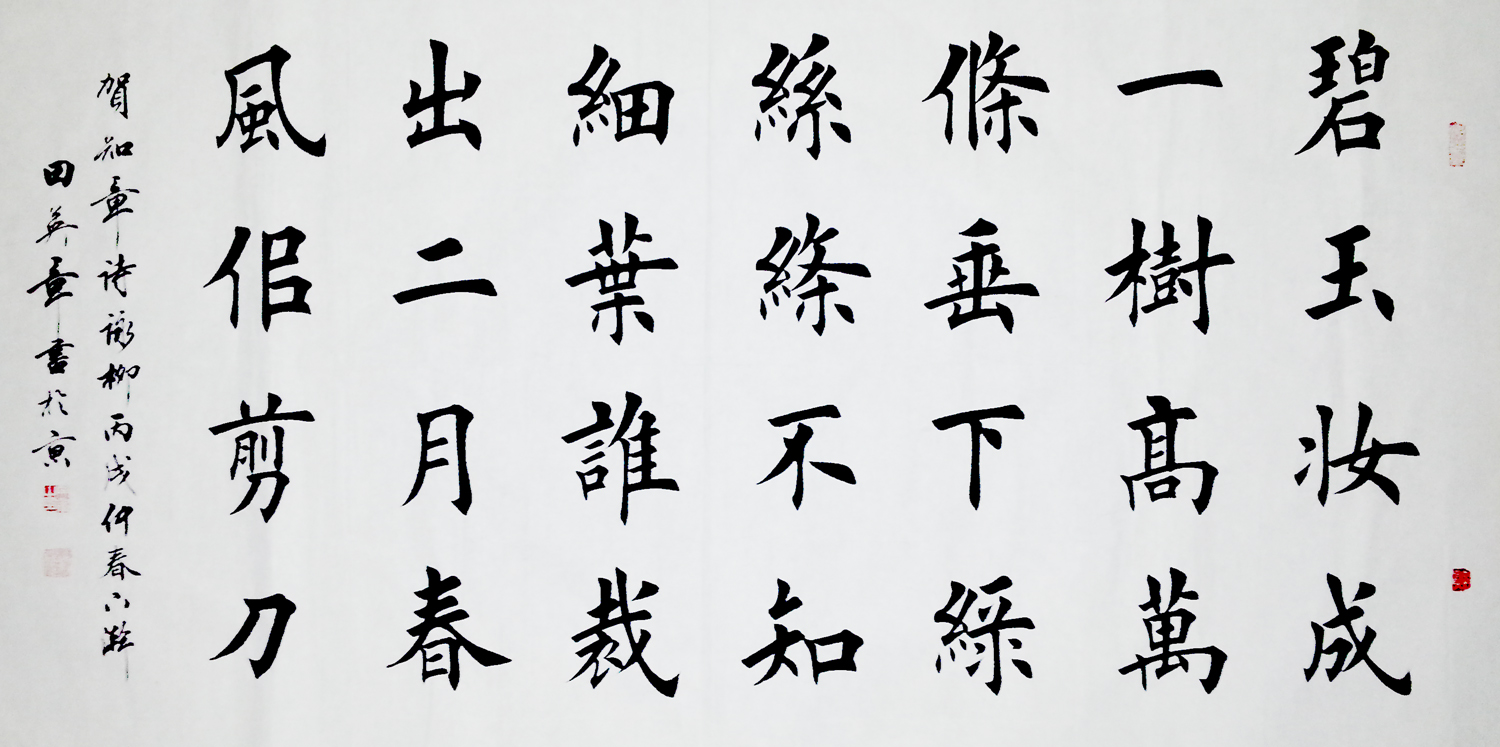 碧玉妆成
一樹髙萬
條垂下綠
絲絛不知
細葉誰裁
出二月春
風佀剪刀
賀知章诗詠柳丙戌仲春下澣
田英章書於京